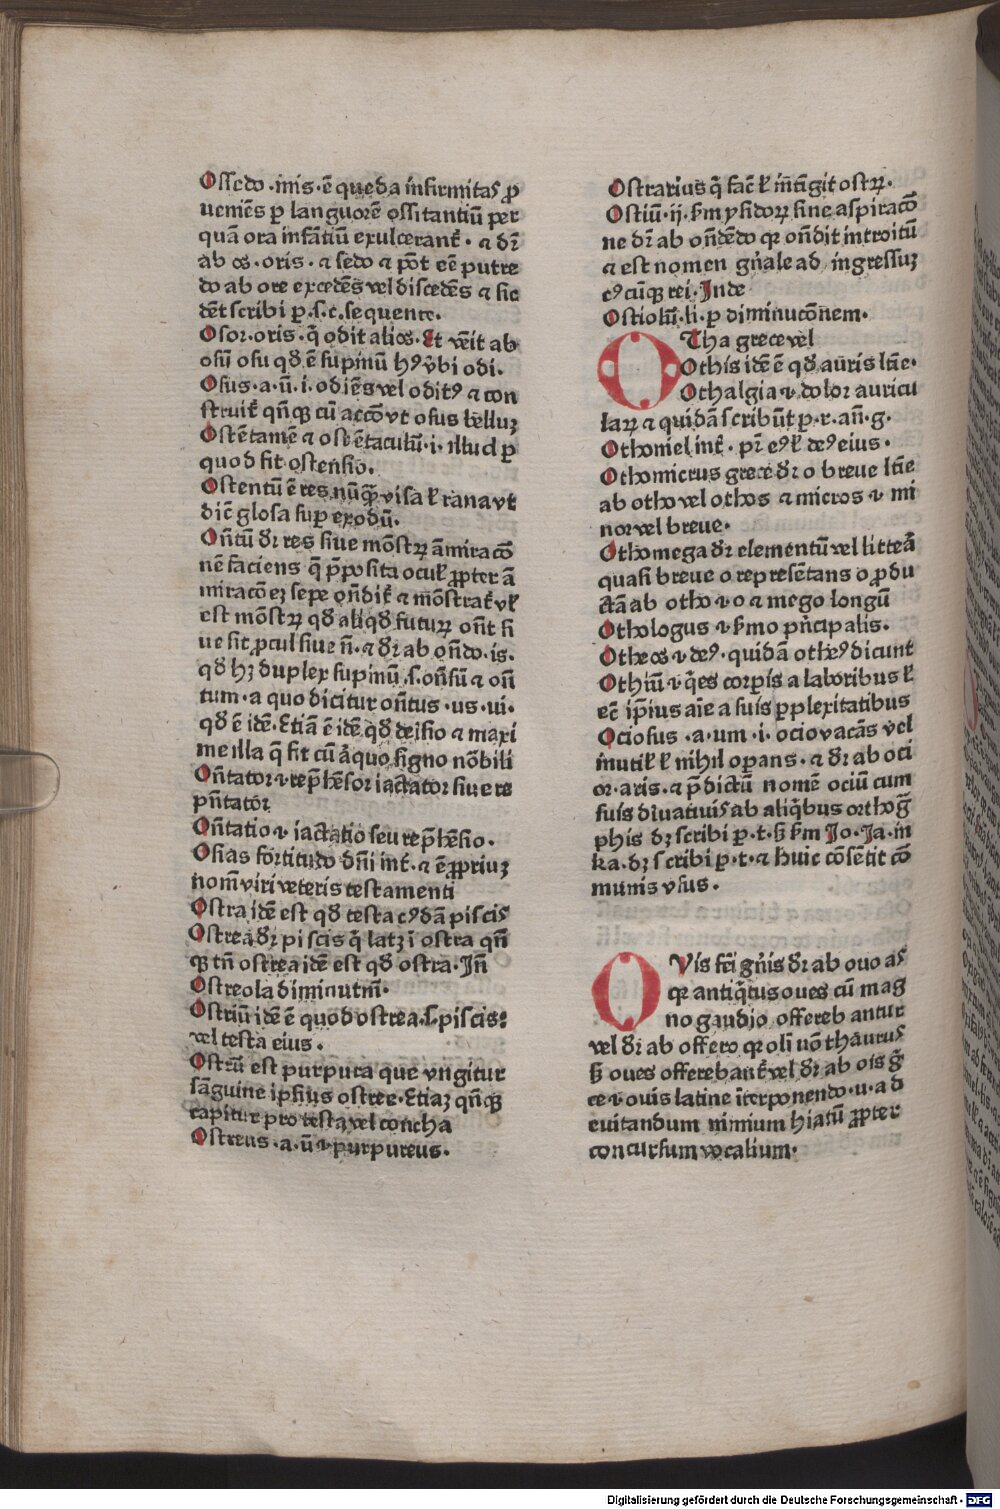 Ossedo·inis·ē queda infirmitas ꝓ
ueniēs ꝑ languorē ossitantiū per
quā ora infātiū exulcerant᷑·⁊ dr̄
ab os·oris·⁊ sedo ⁊ pōt eē putre
do ab ore excedēs vel discedēs ⁊ sic
dēt scribi ꝑ·s·c·sequente·
Osor·oris·q̄ odit alios·Et vēit ab
osū osu qḋ ē supinū hꝰ v̄bi odi·
Osus·a·ū·i·odiēs vel oditꝰ ⁊ con
struit᷑ qn̄qꝫ cū accōvt osus bellūꝫ
Ostētamē ⁊ ostētaculū·i·illud ꝑ
quod fit ostensio·
Ostentū ē res nūqꝫ̄ visa ł rana vt
dic̄ glosa sup̄ exodū·
Oñtū dr̄ res siue mōstꝝ āmiracō
nē faciens q̄ p̄posita ocuł ꝓpter ā
miracōeꝫ sepe on̄dit᷑ ⁊ mōstrat᷑ vł
est mōstꝝ qḋ aliqḋ futuꝝ on̄t si
ue sit ꝓcul siue n̄·⁊ dr̄ ab on̄do·is·
qḋ hꝫ duplex supinū·s·on̄sū ⁊ on̄
tum·a quo dicitur on̄tus·us·ui·
qḋ ē idē·Etiā ē idē qḋ deisio ⁊ maxi
me illa q̄ fit cū āquo signo nōbili
Oñtator·i·rep̄hēsor iactator siue re
pn̄tator
Oñtatio·i·iactatio seu rep̄hēsio·
Osias fortitudo dn̄i int᷑·⁊ ē ꝓpriuꝫ
nom̄ viri veteris testamenti
Ostra idē est qḋ testa cꝰdā piscis
Ostrea dr̄ piscis q̄ latꝫ ī ostra qn̄
qꝫ tn̄ ostrea idē est qḋ ostra·In̄
Ostreola diminutm̄·
Ostriū idē ē quod ostrea·s·piscis·
vel testa eius·
Ostrū est purpura que vngitur
sāguine ipsius ostree·Etiaꝫ qn̄qꝫ
capitur pro testa vel concha
Ostreus·a·ū·i·purpureus·
Ostrarius q̄ facȩ̄ ł in̄tigit ostꝝ·
Ostiū·ij·sm̄ ysidoꝝ sine aspiracō
ne dr̄ ab on̄dēdo qꝛ on̄dit introitū
⁊ est nomen gn̄ale ad ingressuꝫ
cꝰcūqꝫ rei·Inde
Ostiolū·li·ꝑ diminucōnem·
OTha grece vel
Othis idē ē qḋ auris lr̄e·
Othalgia·i·dolor auricu
laꝝ ⁊ quidā scribūt ꝑ·r·an̄·g·
Othoniel int᷑·pr̄ eꝰ ł deꝰ eius·
Othomicrus grece dr̄ o breue ltīe
ab otho vel othos ⁊ micros·i·mi
nor vel breue·
Othomega dr̄ elementū vel litterā
quasi breue o repn̄sētans o ꝓdu
ctā ab otho·i·o ⁊ mego longū
Othologus·i·s̄mo pn̄cipalis·
Otheos·i·deꝰ·quidā othēꝰ dicunt
Othiū·i·q̄es corꝑis a laboribus ł
ec̄ ip̄ius aīe a suis ꝑplexitatibus
Ociosus·a·um·i·ocio vacās vel
īnutił ł nihil oꝑans·⁊ dr̄ ab oci
or·aris·⁊ p̄dictū nomē ociū cum
suis dīuatiuis ab aliq̄bus orthog̃
phis dꝫ scribi ꝑ·t·s̄ sm̄ Jo·Ja·in
ka·dꝫ scribi ꝑ·t·⁊ huic cōsētit cō
munis vsus·
OVis fēi gn̄is dr̄ ab ouo as
qꝛ antiq̄tus oues cū mag
no gaudio offerebantur
vel dr̄ ab offero qꝛ olī nō thaurus
s̄ oues offerebant᷑ vel dr̄ ab ois g̃
ce·i·ouis latine īterponendo·u·ad
euitandum nimium hiatū ꝓpter
concursum vocalium·
Digitalisierung gefördert durch die Deutsche Forschungsgemeinschaft - DFG